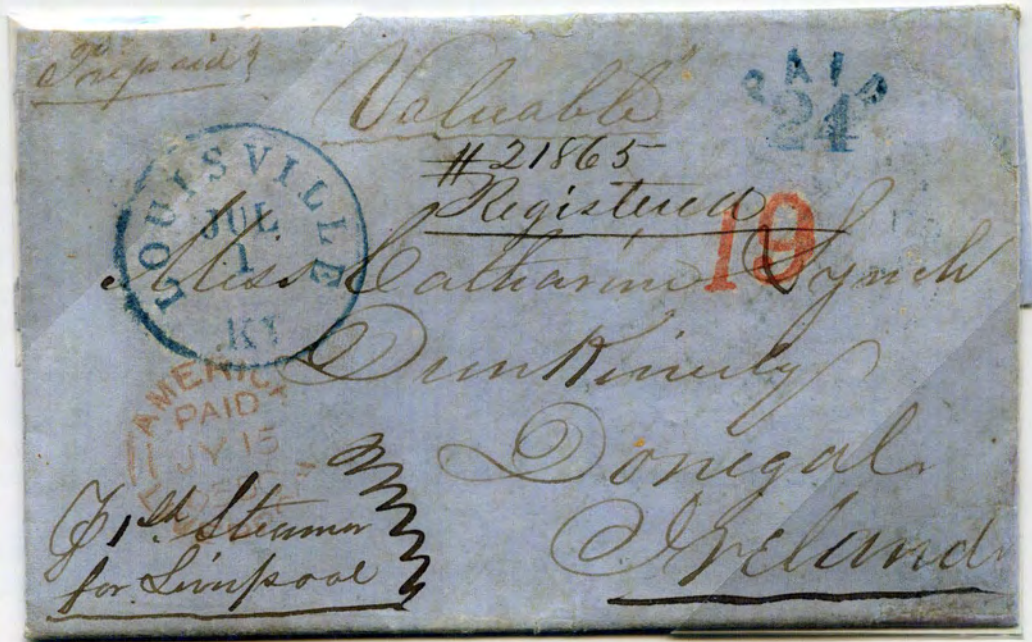 Prepaid
Valuable
PAID
24
#21865
Registered
19
LOUISVILLE
JUL
1
KY
Miss Catharine Lynch
Dunkinely
Donegal
Ireland
AMERIC
PAID
JY 15
1st Steamer
for Liverpool